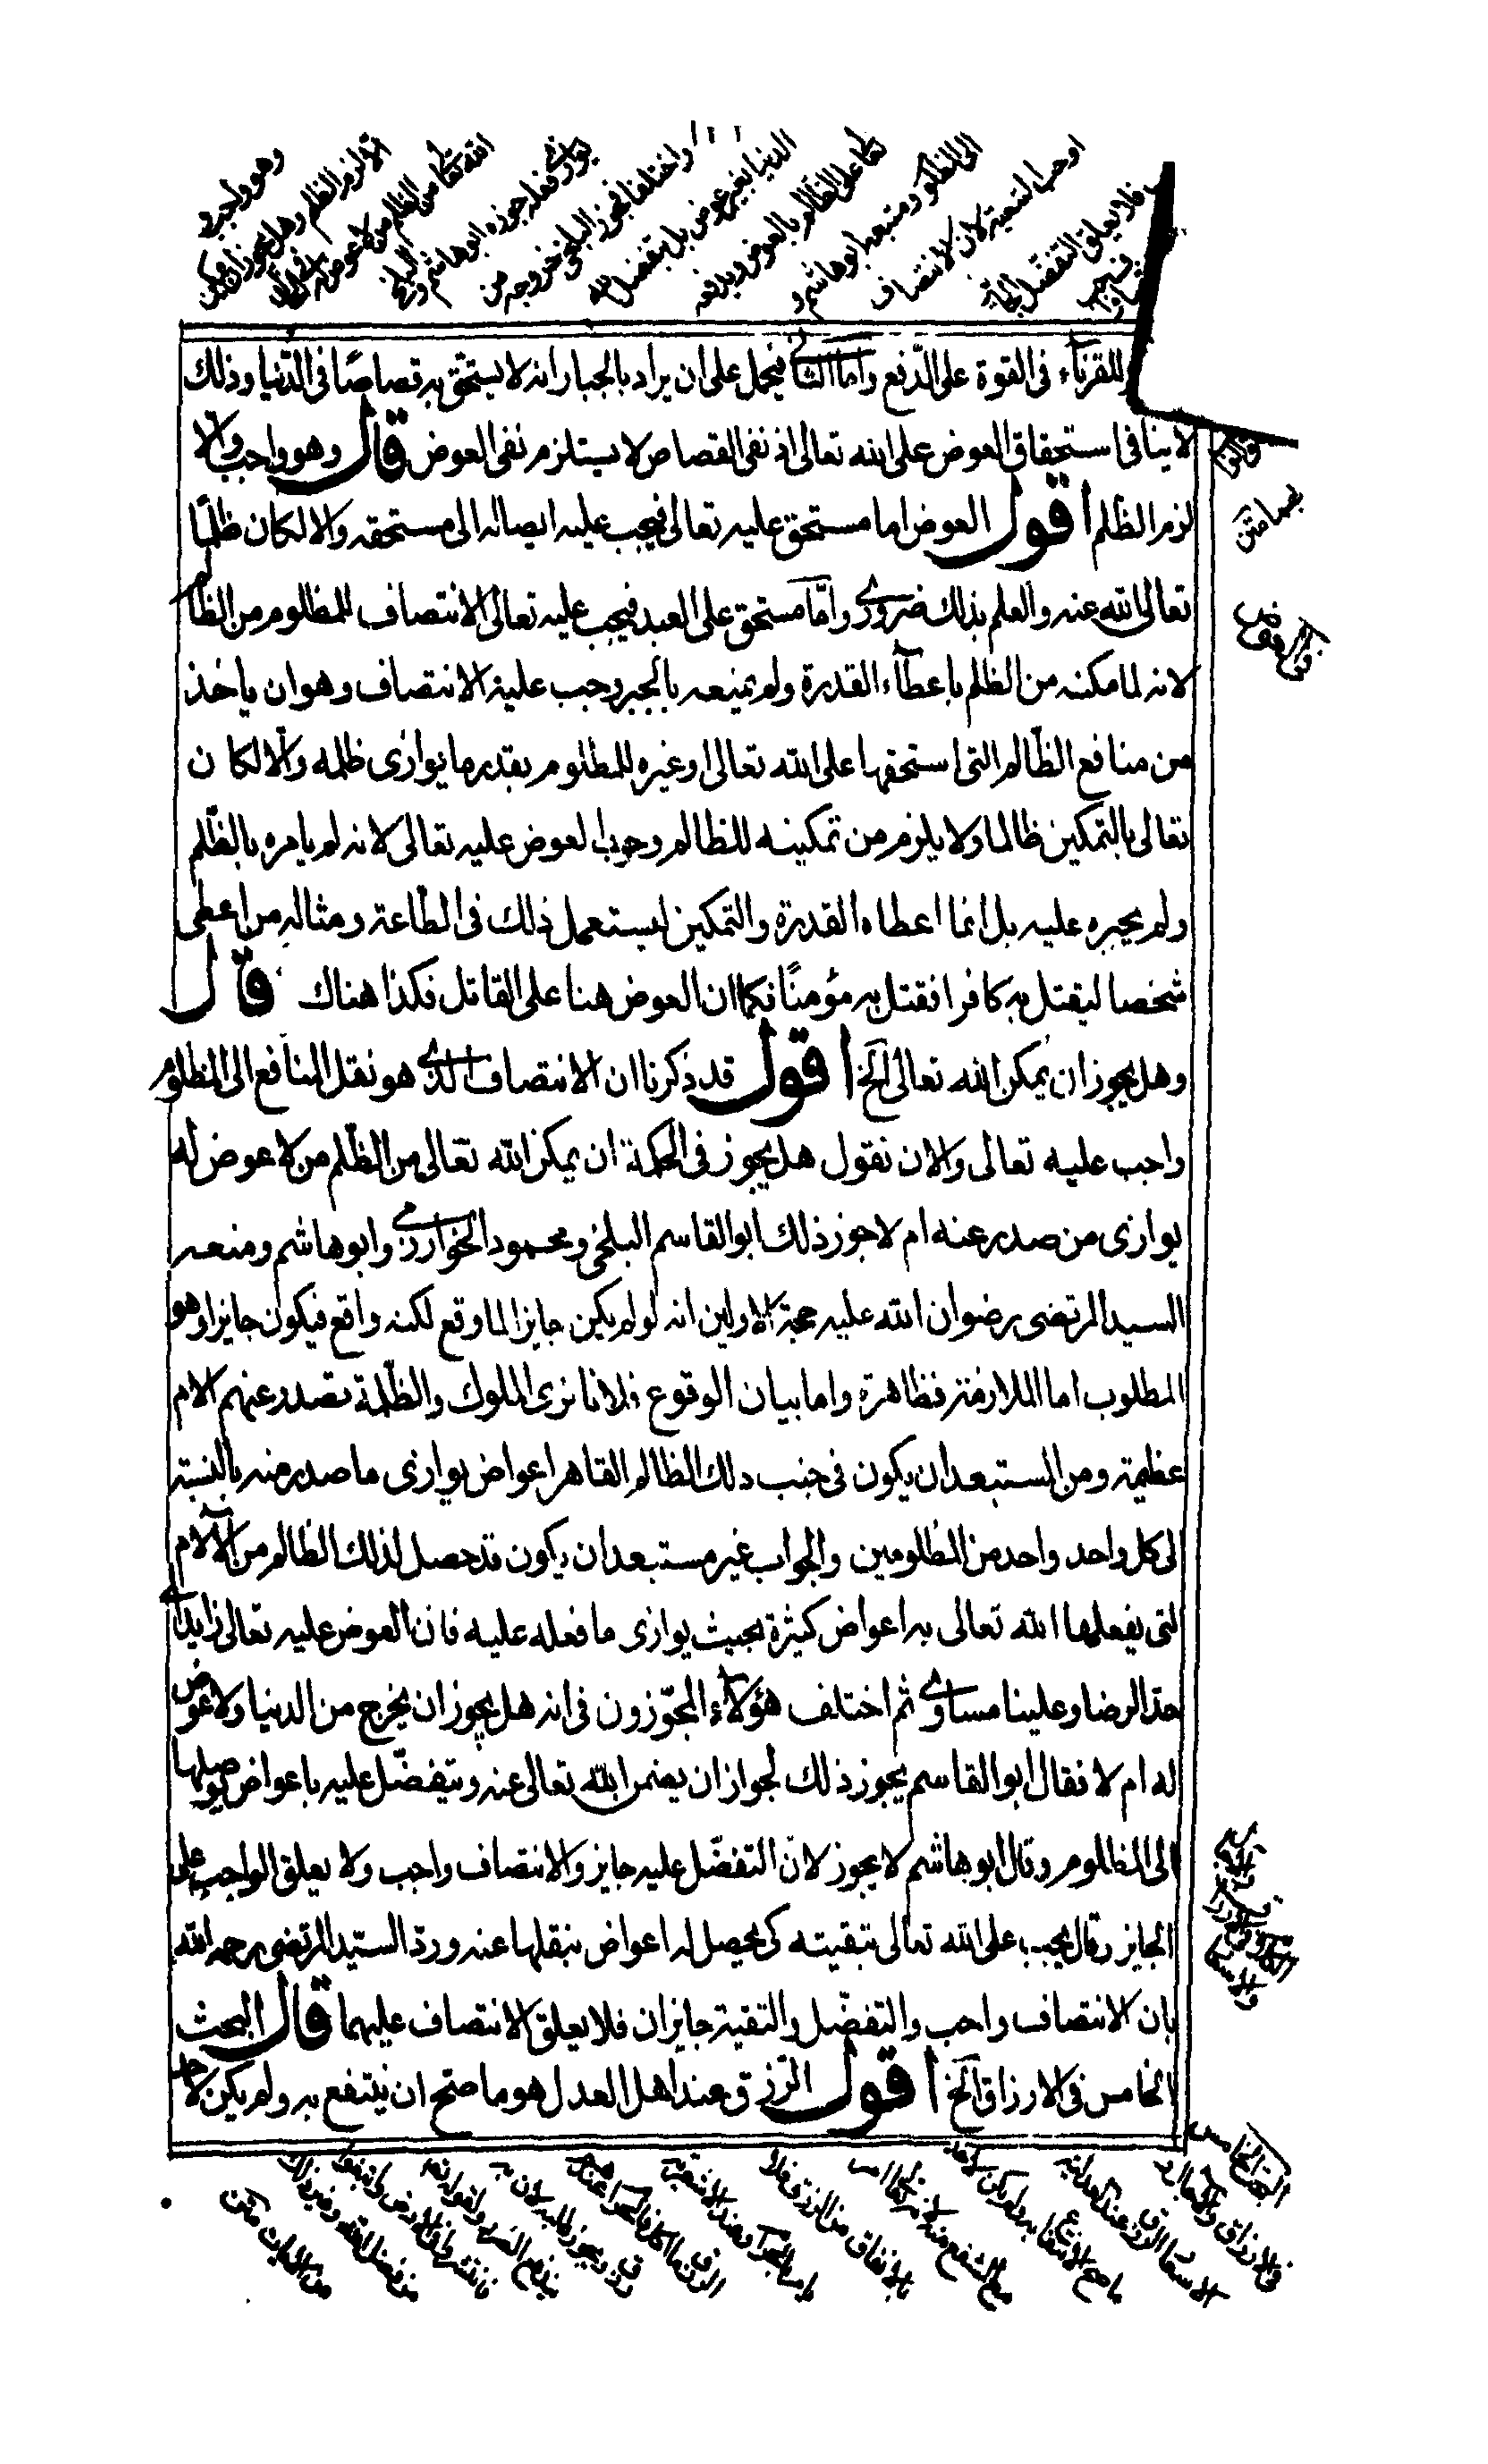 وهو واجب و
الا لزم الظلم وهل يجوز ان يمكن
الله تعالى من الظلم من لا عوض له
جوازه فعله جوزه ابو هاشم والبلخي
واختلفا فجوز البلخي خروجه من
الدنيا بغير عوض بل يتفضل الله
تعالى على الظالم بالعوض ويدفعه
الى المظلوم ومنعه ابو هاشم و
اوجب التبقية لان الانتصاف
فلا يعلق التفضل الجايز
للقرناء فى القوة على الدّفع وامّا الثانى فيحمل على ان يراد بالجبار انه لا يستحق به قصاصًا فى الدّنيا وذلك
لا ينافى استحقاق العوض على الله تعالى اذ نفى القصاص لا يستلزم نفى العوض قال وهو واجب والا
لزم الظلم اقول العوض اما مستحق عليه تعالى فيجب عليه ايصاله الى مستحقه والا لكان ظلمًا
تعالى الله عنه والعلم بذلك ضرورى وامّا مستحق على العبد فيجب عليه تعالى الانتصاف للمظلوم من الظالم
لانه لما مكنه من الظلم باعطآء القدرة ولم يمنعه بالجبر وجب عليه الانتصاف وهو ان ياخذ
من منافع الظّالم التى استحقها على الله تعالى او غيره للمظلوم بقدر ما يوازى ظلمه والّا لكان
تعالى بالتمكين ظالما ولا يلزم من تمكينه للظالم وجوب العوض عليه تعالى لانه لم يامره بالظّلم
ولم يجبره عليه بل انما اعطاه القدرة والتمكين ليستعمل ذلك فى الطّاعة ومثاله من اعطى
شخصا ليقتل به كافرا فقتل به مؤمنًا فكما ان العوض هنا على القاتل فكذا هناك قال
وهل يجوز ان يمكن الله تعالى الخ اقول قد ذكرنا ان الانتصاف الذى هو نقل المنافع الى المظلوم
واجب عليه تعالى والان نقول هل يجوز فى الحكمة ان يمكن الله تعالى من الظّلم من لا عوض له
يوازى من صدر عنه ام لا جوز ذلك ابو القاسم البلخى ومحمود الخوارزمى وابو هاشم ومنعه
السيد المرتضى رضوان الله عليه حجة الاولين انه لو لم يكن جايزا لما وقع لكنه واقع فيكون جايزا وهو
المطلوب اما الملازمة فظاهرة واما بيان الوقوع فلانا نرى الملوك والظّلمة تصدر عنهم الام
عظيمة ومن المستبعد ان يكون فى جنب ذلك الظالم القاهر اعواض يوازى ما صدر منه بالنسبة
الى كل واحد واحد من المظلومين والجواب غير مستبعد ان يكون قد حصل لذلك الظالم من الآلام
التى يفعلها الله تعالى به اعواض كثيرة بحيث يوازى ما فعله عليه فان العوض عليه تعالى زايد
حد الرضا وعلينا مساوى ثم اختلف هؤلاء المجوّزون فى انه هل يجوز ان يخرج من الدنيا ولا عوض
له ام لا فقال ابو القاسم يجوز ذلك لجواز ان يضمن الله تعالى عنه ويتفضّل عليه باعواض يوصلها
الى المظلوم وقال ابو هاشم لا يجوز لان التفضّل عليه جايز والانتصاف واجب ولا يعلق الواجب على
الجايز وقال يجب على الله تعالى تبقيته كى يحصل له اعواض ينقلها عنه وردّ السيّد المرتضى رحمه الله
بان الانتصاف واجب والتفضّل والتقية جايزان فلا يعلق الانتصاف عليهما قال البحث
الخامس فى الارزاق الخ اقول الرّزق عند اهل العدل هو ما صح ان ينتفع به ولم يكن لاحد
البحث الخامس
فى الارزاق والاجال و
الاسعار الرزق عند العدلية
ما صح الانتفاع به ولم يكن لاحد